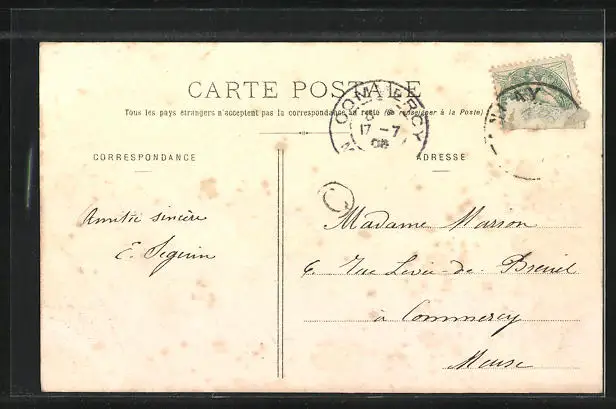 CARTE POSTALE
Tous les pays étrangers n'acceptent pas la correspondance au recto (Se renseigner à la Poste)
COMMERCY
17 - 7
08
CORRESPONDANCE
ADRESSE
Amitié sincère
E. Seguin
Madame Marson
6. Rue Levée-de-Breuil
à Commercy
Meuse